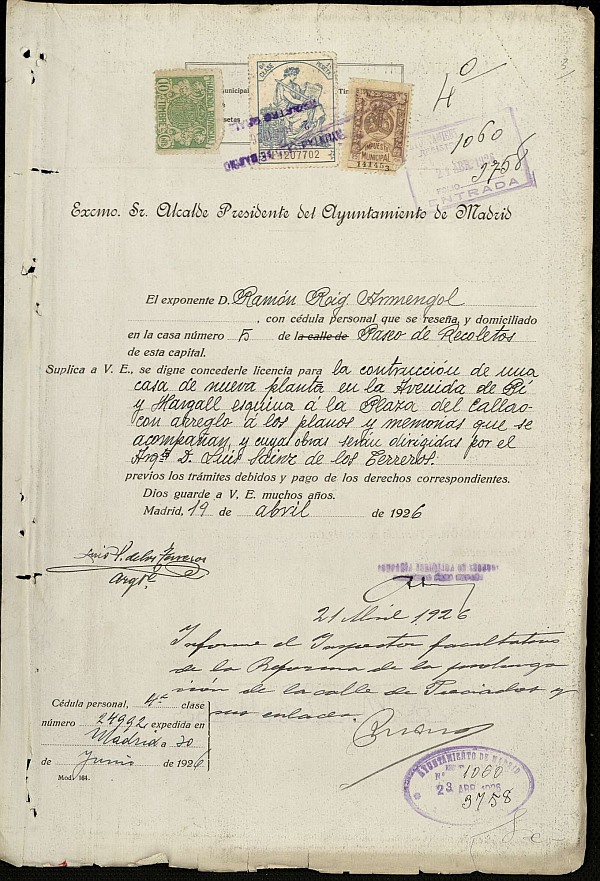 10
TIMBRE
8ª CLASE
PESETA
A1207702
IMPUESTO
MUNICIPAL
141453
4º
1060
3758
ENTRADA
Excmo. Sr. Alcalde Presidente del Ayuntamiento de Madrid
El exponente D. Ramón Roig Armengol
, con cédula personal que se reseña, y domiciliado
en la casa número 5 de la calle de Paseo de Recoletos
de esta capital.
Suplica a V. E., se digne concederle licencia para la contrucción de una
casa de nueva planta en la Avenida de Pí
y Margall esquina á la Plaza del Callao
con arreglo á los planos y memorias que se
acompañan, y cuya obras serán dirigidas por el
Arqto D. Luis Sáinz de los Terreros.
previos los trámites debidos y pago de los derechos correspondientes.
Dios guarde a V. E. muchos años.
Madrid, 19 de abril de 1926
Luis S. de los Terreros
Arqto.
21 Abril 1926
Informe el Inspector facultativo
de la Reforma de la prolonga
ción de la calle de Preciados y
sus enlaces.
Cédula personal, 4ª clase
número 24992, expedida en
Madrid a 30
de Junio de 1926
Mod. 164.
AYUNTAMIENTO DE MADRID
Nº 1060
23 ABR. 1926
3758